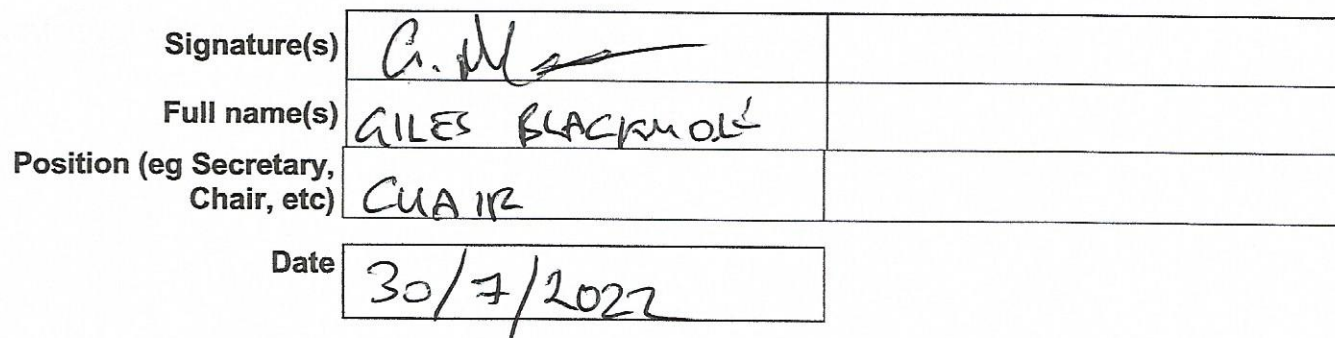 Signature(s)
Full name(s) GILES BLACKMOLE
Position (eg Secretary,
Chair, etc) CHAIR
Date 30/7/2022